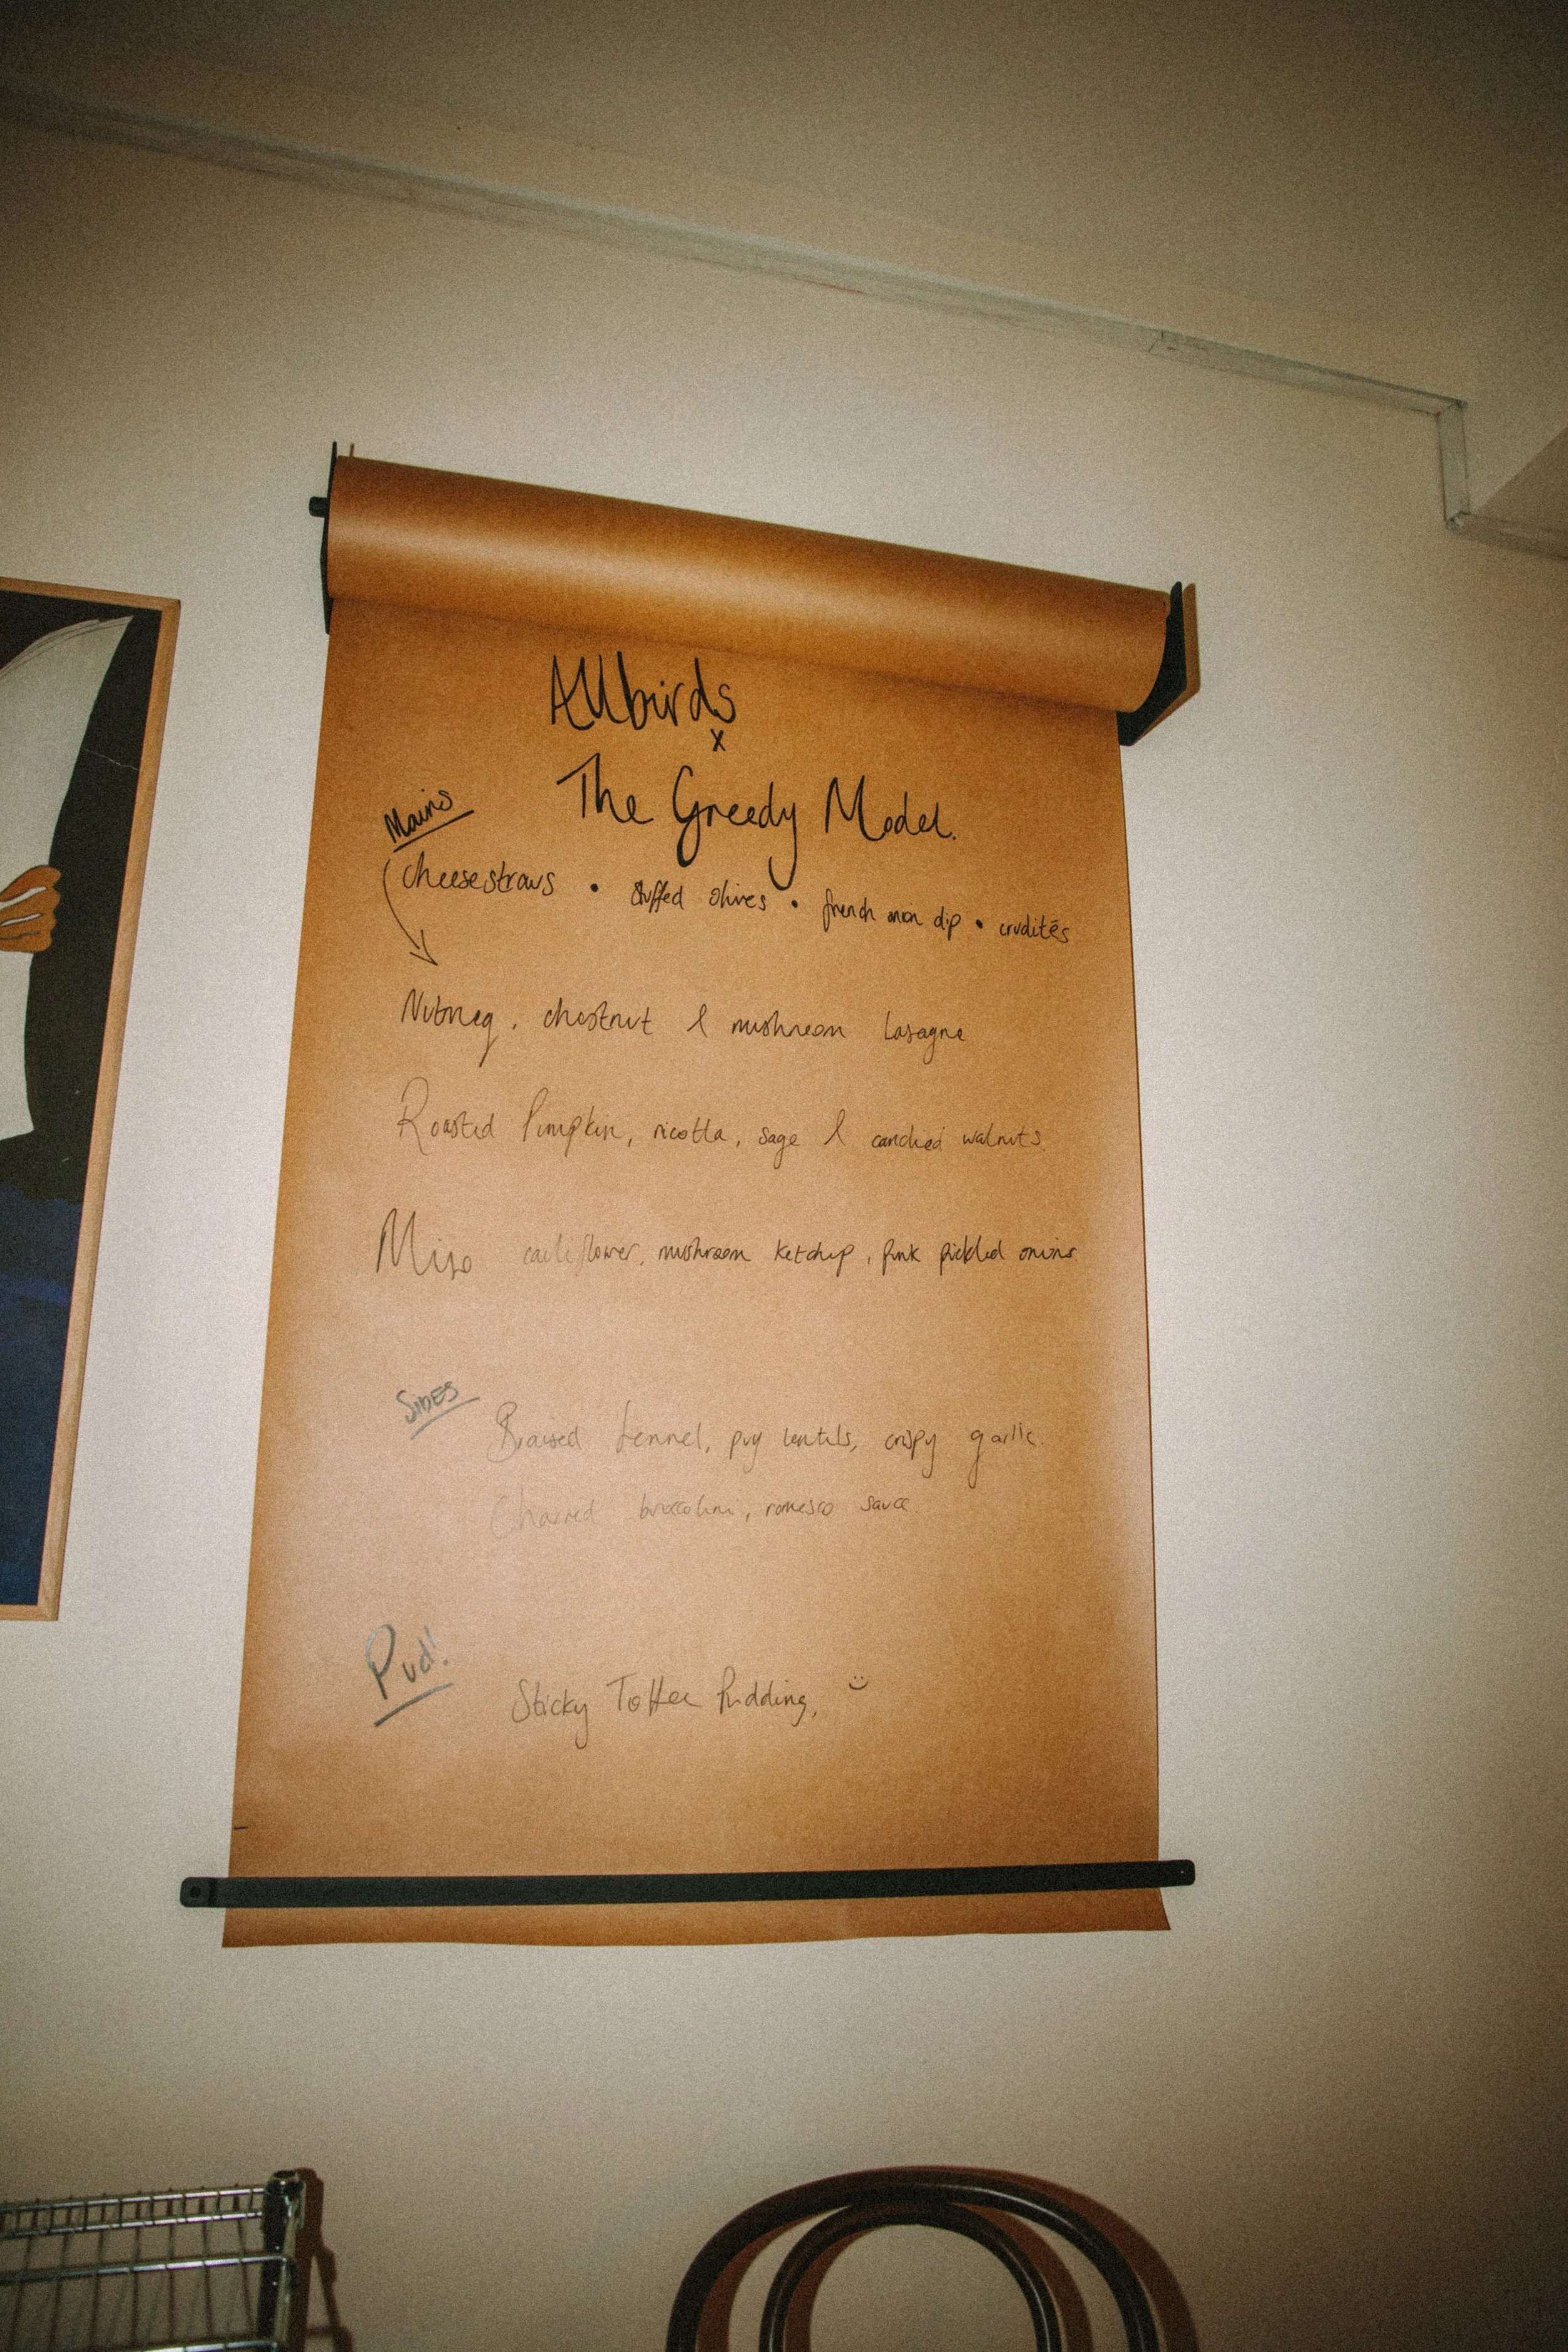 Allbirds
x
The Greedy Model.
Mains
Cheesestraws • Stuffed olives • french onion dip • crudités
Nutmeg, chestnut & mushroom lasagne
Roasted Pumpkin, ricotta, sage & candied walnuts.
Miso cauliflower, mushroom ketchup, pink pickled onions.
SIDES
Braised fennel, puy lentils, crispy garlic.
Charred broccolini, romesco sauce.
Pud!
Sticky Toffee Pudding,